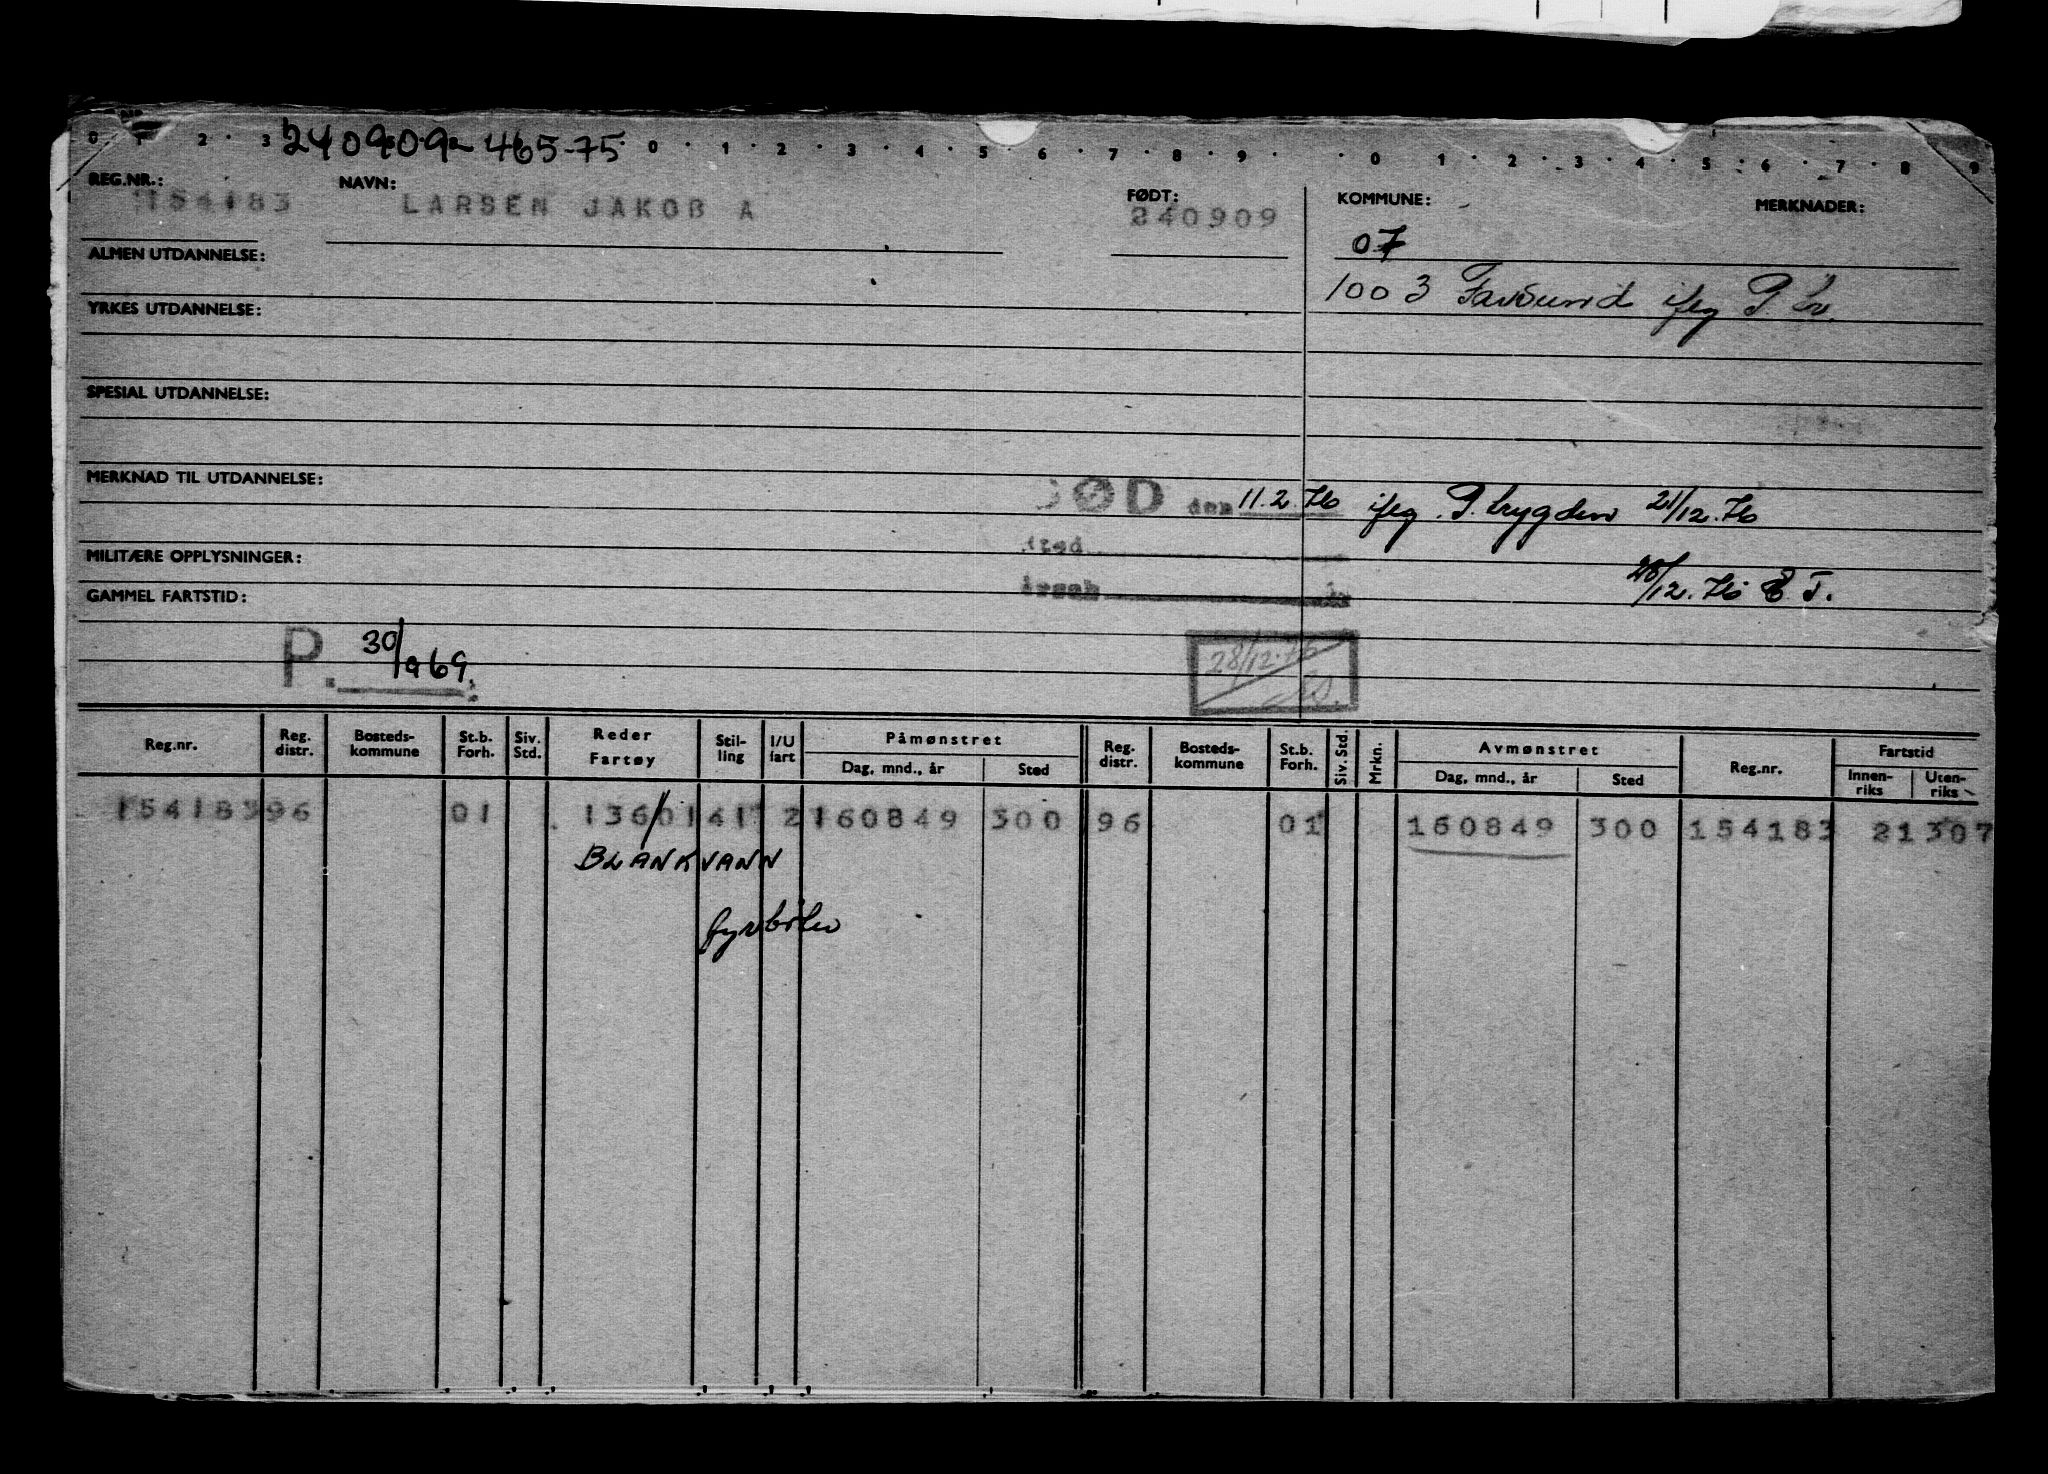 0 1 2 3 240909-465-75 0 1 2 3 4 5 6 7 8 9 0 1 2 3 4 5 6 7 8 9
REG.NR.: NAVN: FØDT: KOMMUNE: MERKNADER:
154183 LARSEN JAKOB A 240909
07
ALMEN UTDANNELSE:
1003 Farsund ifлg P. Lv.
YRKES UTDANNELSE:
SPESIAL UTDANNELSE:
MERKNAD TIL UTDANNELSE:
DØD den 11.2.76 iflg. P. trygden 21/12.76
sted
MILITÆRE OPPLYSNINGER:
årsak
28/12.76 E T.
GAMMEL FARTSTID:
P. 30/9 69.
28/12.76
Reg.nr. Reg. distr. Bosteds-kommune St.b. Forh. Siv. Std. Reder Fartøy Stil-ling I/U fart Påmønstret Dag, mnd., år Sted Reg. distr. Bosteds-kommune St.b. Forh. Siv. Std. Mrkn. Avmønstret Dag, mnd., år Sted Reg.nr. Fartstid Innen-riks Uten-riks
154183 96 01 136/01 41 2 160849 300 96 01 160849 300 154183 21 307
BLANKVANN
fyrbøter